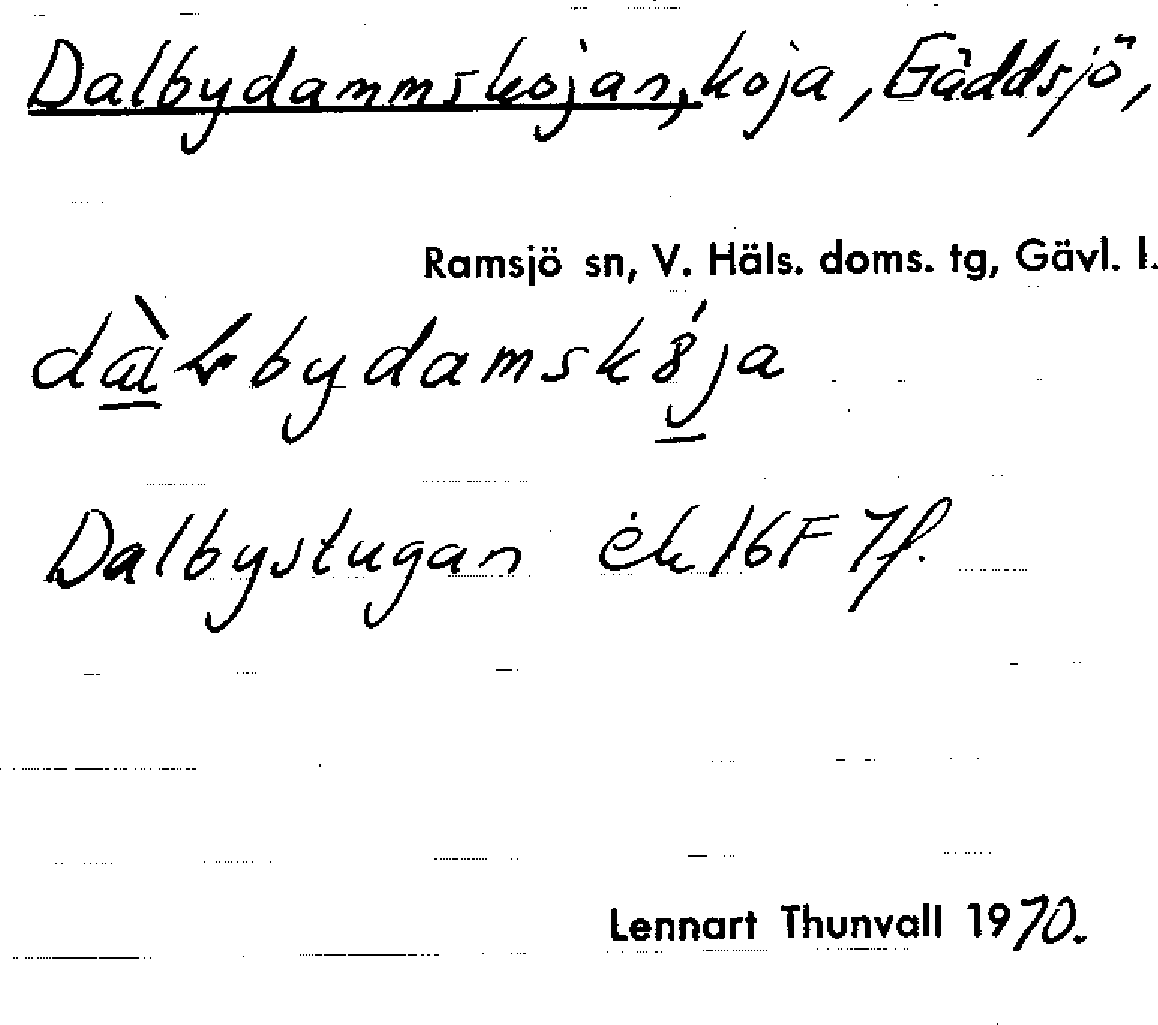 Dalbydammskojan, koja, Gäddsjö,
Ramsjö sn, V. Häls. doms. tg, Gävl. l.
Dalbystugan ek 16F 7f.
Lennart Thunvall 1970.